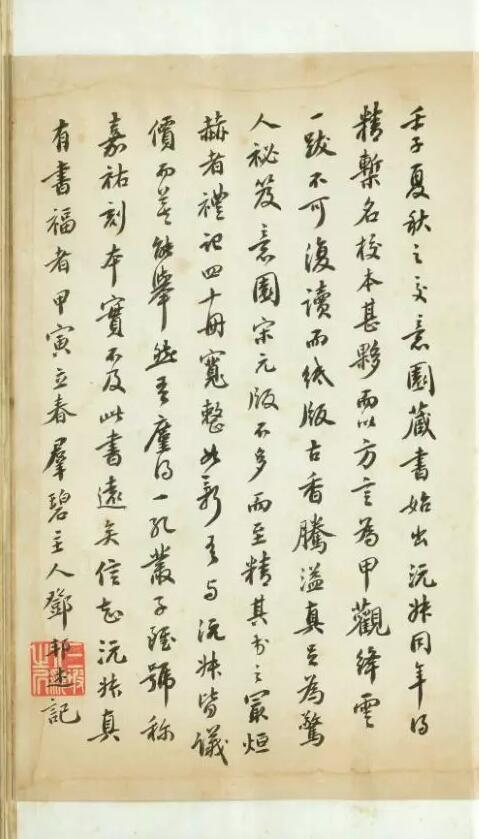 壬子夏秋之交意園藏書始出沅叔同年得
精槧名校本甚夥而以方言為甲觀絳雲
一跋不可復讀而紙版古香騰溢真足為驚
人祕笈意園宋元版不多而至精其書之最烜
赫者禮記四十冊寬整如新吾與沅叔皆議
價而莫能舉然吾廑得一孔叢子雖號稱
嘉祐刻本實不及此書遠矣信知沅叔真
有書福者甲寅立春羣碧主人鄧邦述記